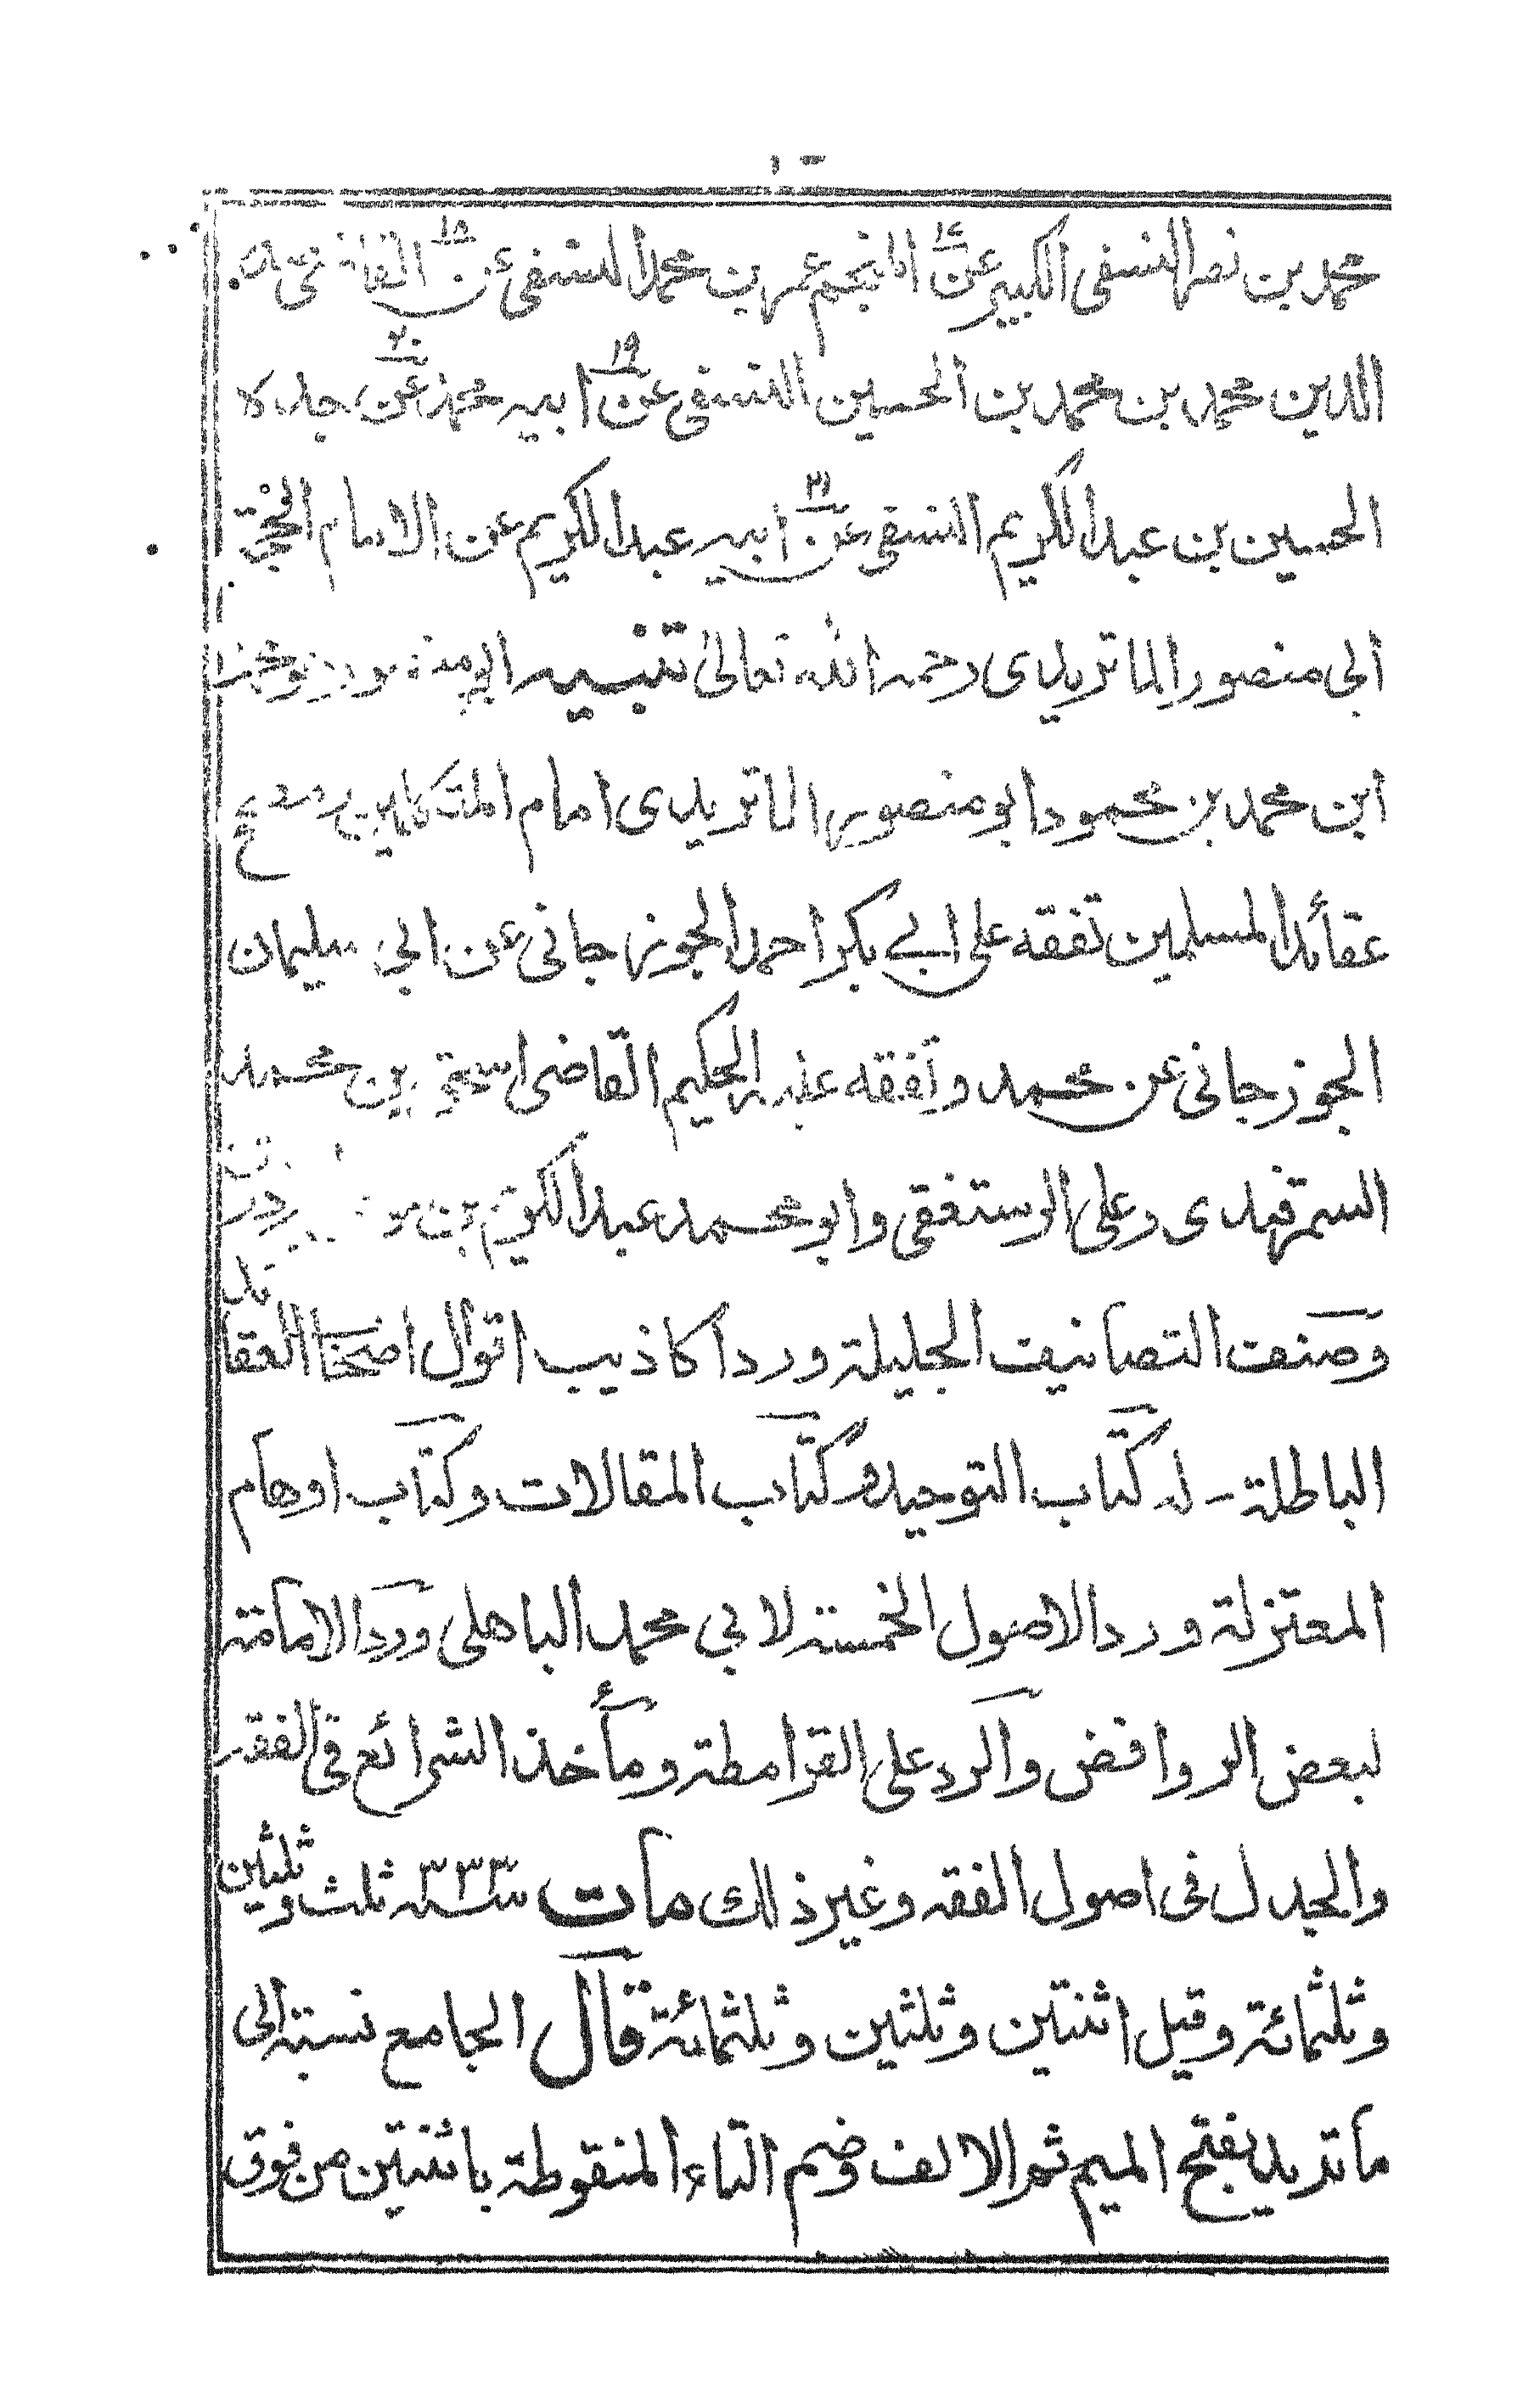 محمد بن نصر النسفى الكبير عن ابى النجم عمر بن محمد النسفى عن
الدين محمد بن محمد بن الحسين النسفى عن ابيه محمد عن جده
الحسين بن عبد الكريم النسفى عن ابيه عبد الكريم عن الامام الحجة
ابى منصور الماتريدى رحمه الله تعالى تنبيه ابو منصور
ابن محمد بن محمود ابو منصور الماتريدى امام المتكلمين
عقائد المسلمين تفقه على ابي بكر احمد الجوزجانى عن ابي سليمان
الجوزجانى عن محمد وتفقه عليه الحكيم القاضى اسحق بن محمد
السمرقندى وعلى الرستغفنى وابو محمد عبد الكريم بن
وصنف التصانيف الجليلة ورد اكاذيب اقوال اصحاب العقائد
الباطلة - له كتاب التوحيد وكتاب المقالات وكتاب اوهام
المعتزلة ورد الاصول الخمسة لابي محمد الباهلى ورد الامامة
لبعض الروافض والرد على القرامطة ومأخذ الشرائع فى الفقه
والجدل فى اصول الفقه وغير ذلك مات سنة ٣٣٣ ثلث وثلثين
وثلثمائة وقيل اثنتين وثلثين وثلثمائة قال الجامع نسبته الى
ماتريد بفتح الميم ثم الالف وضم التاء المنقوطة باثنتين من فوق